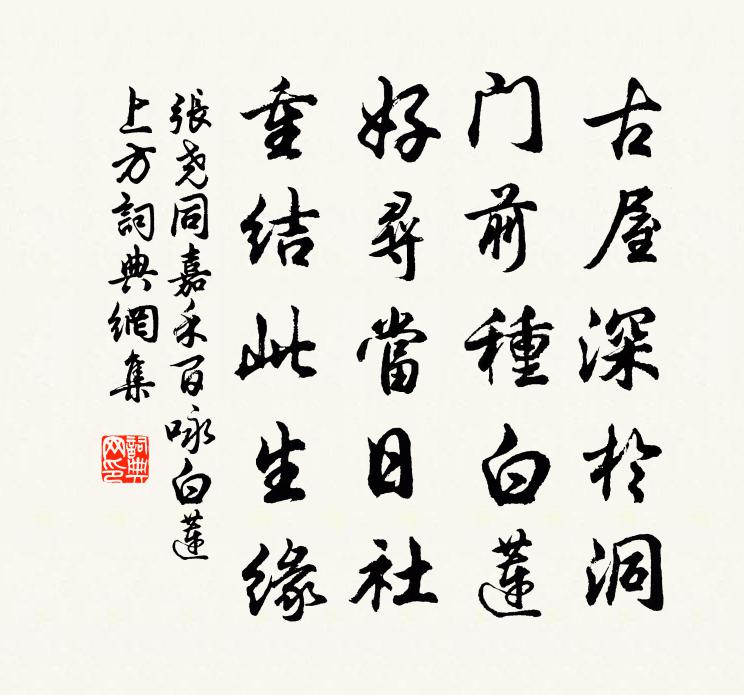 古屋深於洞
門前種白蓮
好尋當日社
重結此生緣
張堯同嘉禾百咏白蓮
上方詞典網集
詞典网印